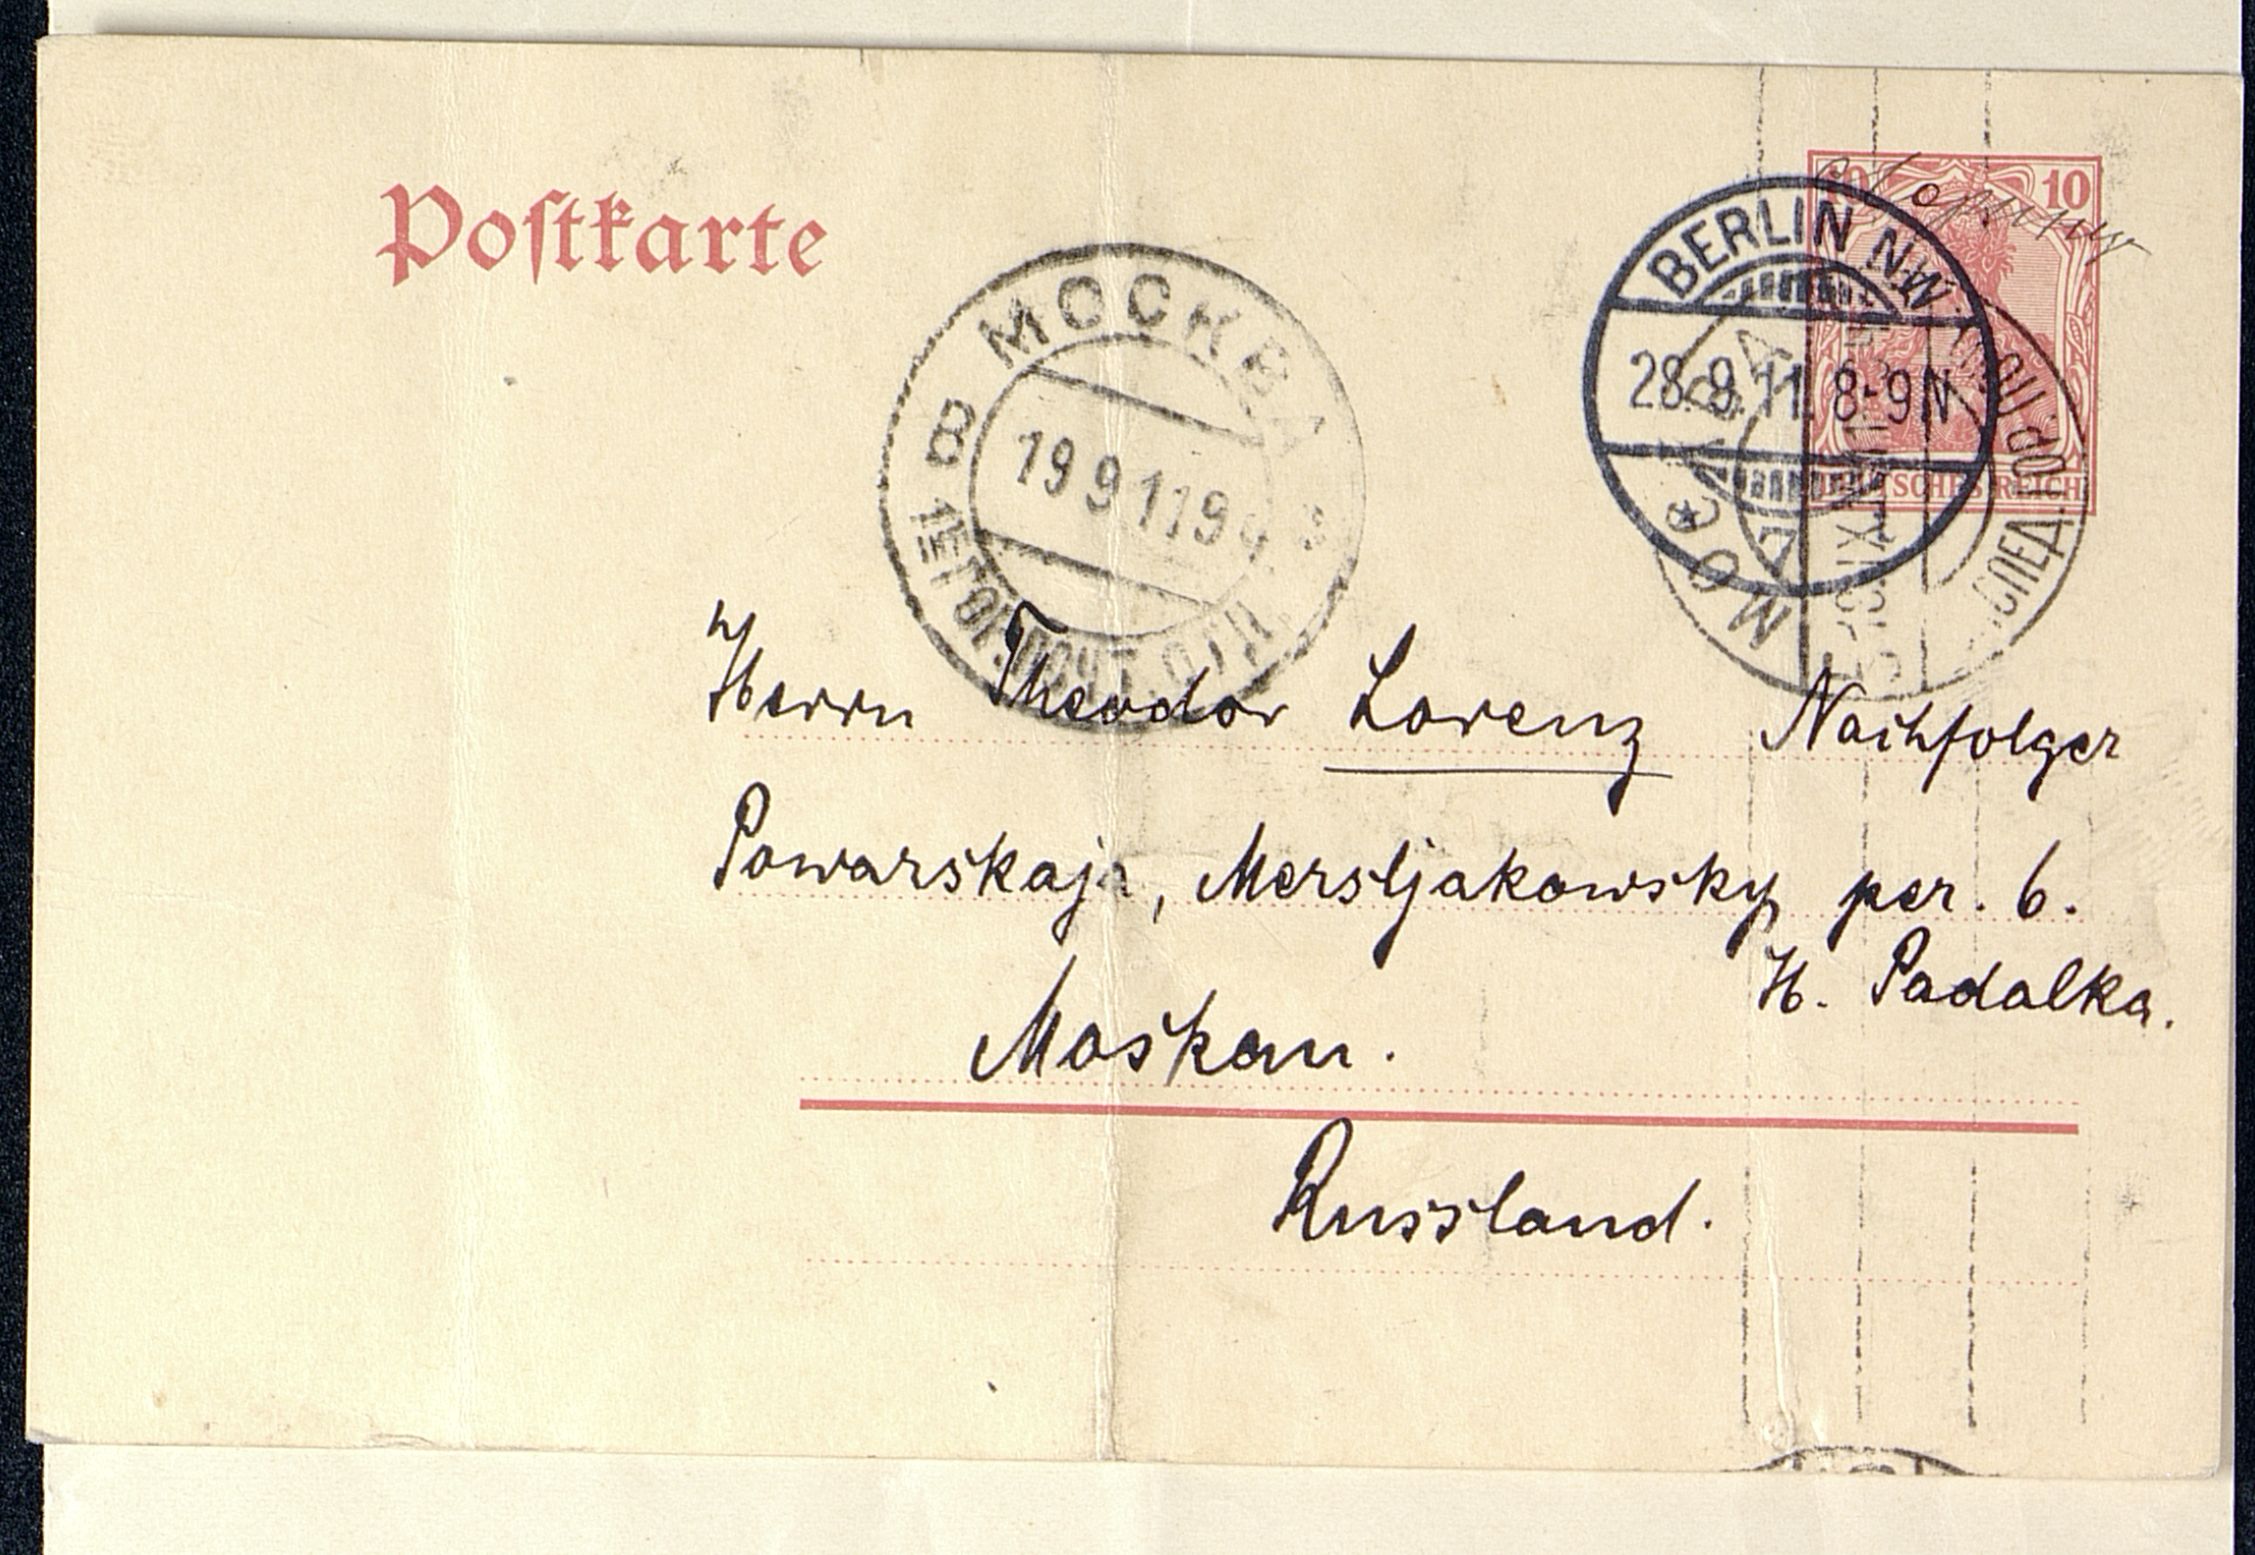 Postkarte
10
DEUTSCHES REICH
BERLIN N.W.
28.9.11. 8-9N
МОСКВА
19 9 11
В
1Е ГОР. ПОЧТ. ОТД.
МОСКВА
Herrn Theodor Lorenz Nachfolger
Powarskaja, Mersljakowsky per. 6.
H. Padalka.
Moskau.
Russland.